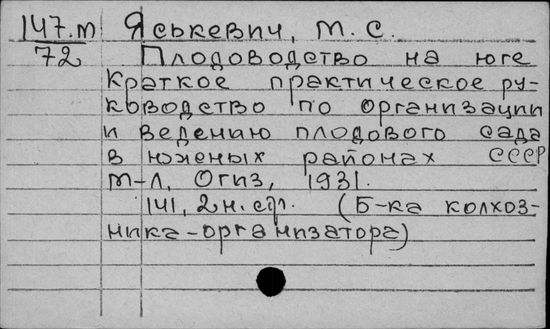 147.м Яськевич, М. С.
72 Плодоводство на юге
Краткое практическое ру-
ководство по организации
и ведению плодового сада
в южных районах СССР
М-Л, Огиз, 1931.
141, 2 н. стр. (Б-ка колхоз-
ника-организатора)